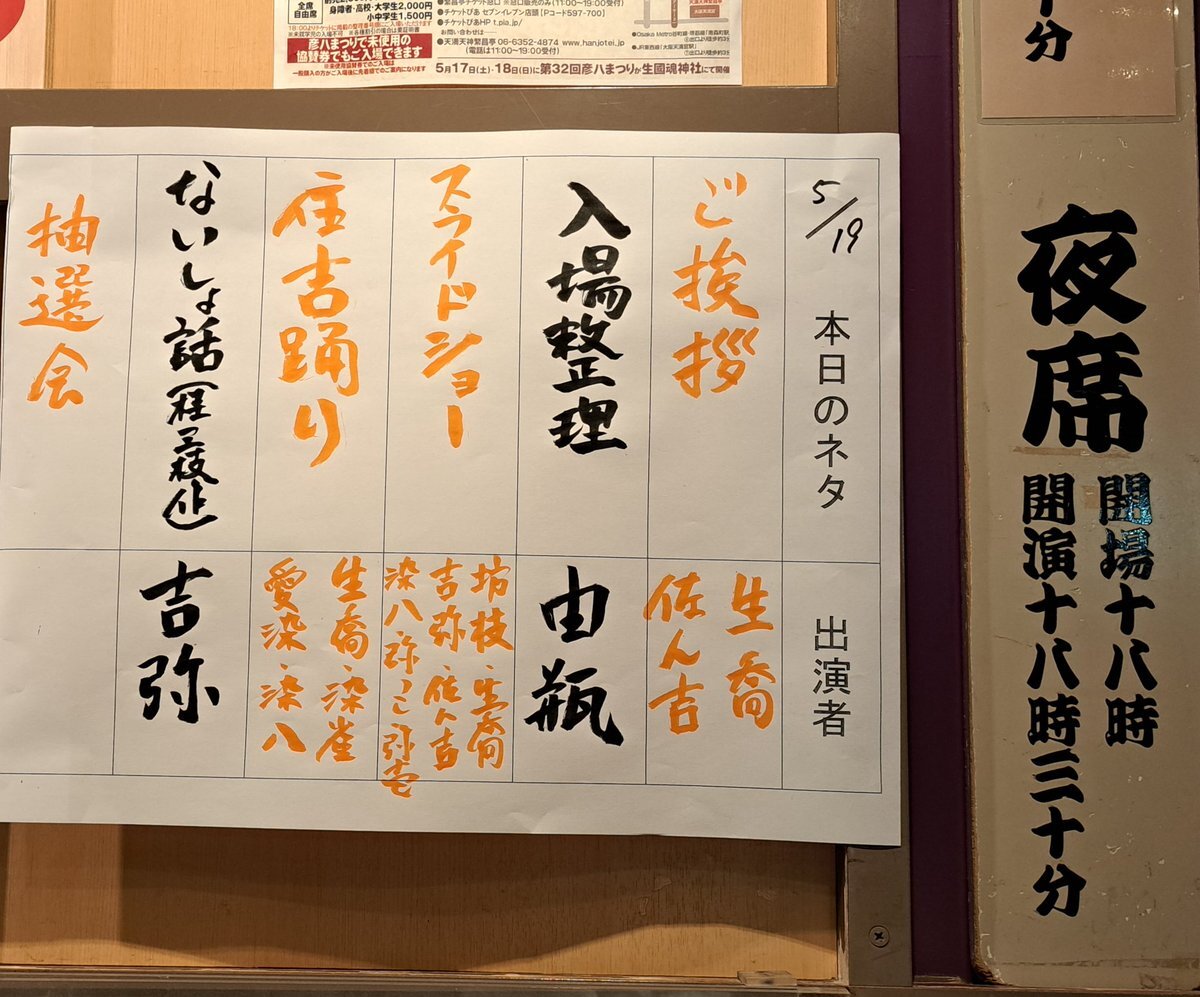 全席
自由席
身障者・高校・大学生2,000円
小中学生1,500円
彦八まつりで未使用の
協賛券でもご入場できます
●繁昌亭チケット窓口 ※窓口販売のみ(11:00〜19:00受付)
●チケットぴあ セブンイレブン店頭 [Pコード597-700]
●チケットぴあHP t.pia.jp/
お問い合わせ
●天満天神繁昌亭 06-6352-4874 www.hanjotei.jp
(電話は11:00〜19:00受付)
5月17日(土)・18日(日)に第32回彦八まつりが生國魂神社にて開催
5/19
本日のネタ
出演者
ご挨拶
生喬
佐ん吉
入場整理
由瓶
スライドショー
坊枝・生喬
吉弥・佐ん吉
染八・弥っこ・弥壱
住吉踊り
生喬・染雀
愛染・染八
ないしょ話(桂三枝作)
吉弥
抽選会
十分
夜席
開場十八時
開演十八時三十分